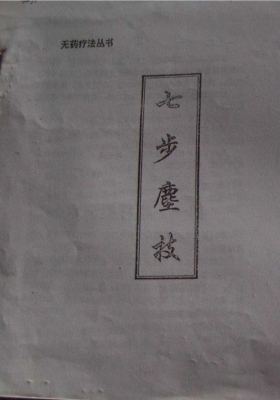 无药疗法丛书
七步塵技